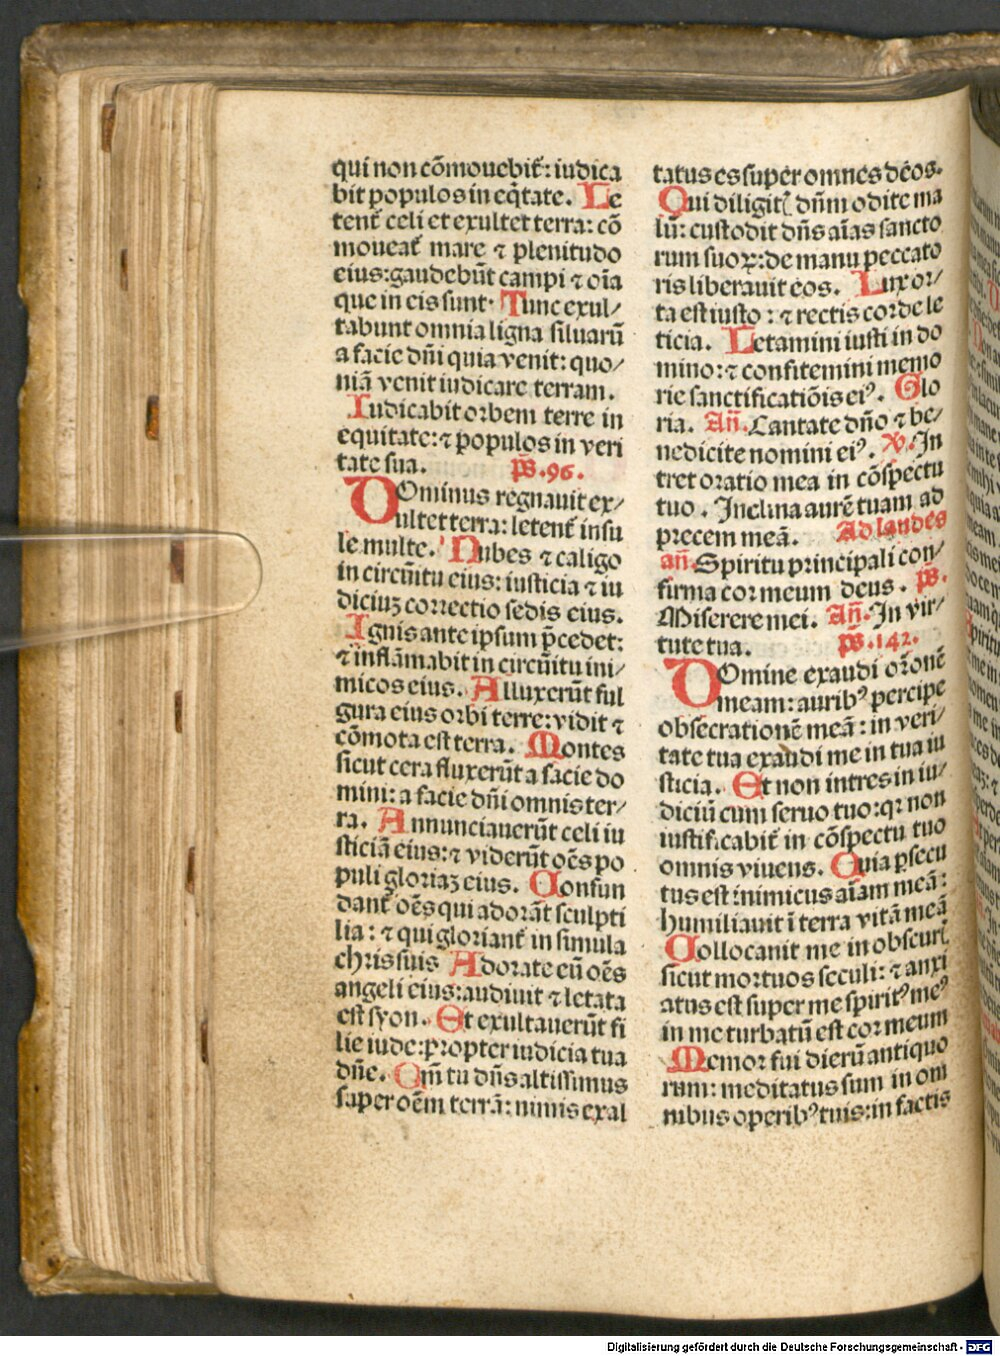 qui non cōmouebit᷑: iudica
bit populos in eq̄tate. Le
tent᷑ celi et exultet terra: cō
moueat᷑ mare ⁊ plenitudo
eius: gaudebūt campi ⁊ oīa
que in eis sunt· Tunc exul⸗
tabunt omnia ligna siluarū
a facie dn̄i quia venit: quo⸗
niā venit iudicare terram.
Iudicabit orbem terre in
equitate: ⁊ populos in veri
tate sua. ps̄. 96.
DOminus regnauit ex⸗
ultet terra: letent᷑ insu
le multe. Nubes ⁊ caligo
in circūitu eius: iusticia ⁊ iu
diciuꝫ correctio sedis eius.
Ignis ante ipsum p̄cedet:
⁊ inflāmabit in circūitu ini⸗
micos eius. Alluxerūt ful
gura eius orbi terre: vidit ⁊
cōmota est terra. Montes
sicut cera fluxerūt a facie do
mini: a facie dn̄i omnis ter⸗
ra. Annunciauerūt celi iu
sticiā eius: ⁊ viderūt oēs po
puli gloriaꝫ eius. Confun
dant᷑ oēs qui adorāt sculpti
lia: ⁊ qui gloriant᷑ in simula
chris suis Adorate eū oēs
angeli eius: audiuit ⁊ letata
est syon. Et exultauerūt fi
lie iude: propter iudicia tua
dn̄e. Qm̄ tu dn̄s altissimus
super oēm terrā: nimis exal
tatus es super omnes deos.
Qui diligit{ dn̄m odite ma
lū: custodit dn̄s aīas sancto
rum suoꝝ: de manu peccato
ris liberauit eos. Lux or⸗
ta est iusto: ⁊ rectis corde le
ticia. Letamini iusti in do
mino: ⁊ confitemini memo
rie sanctificatiōis eiꝰ. Glo
ria. An̄. Cantate dn̄o ⁊ be⸗
nedicite nomini eiꝰ. ℣. In
tret oratio mea in cōspectu
tuo. Inclina aurē tuam ad
precem meā. Ad laudes
an̄. Spiritu principali con⸗
firma cor meum deus. ps̄.
Miserere mei. An̄. In vir⸗
tute tua. ps̄. 142.
DOmine exaudi oronē
meam: auribꝰ percipe
obsecrationē meā: in veri⸗
tate tua exaudi me in tua iu
sticia. Et non intres in iu⸗
diciū cum seruo tuo: qꝛ non
iustificabit᷑ in cōspectu tuo
omnis viuens. Quia ꝑsecu
tus est inimicus aīam meā:
humiliauit ī terra vitā meā
Collocauit me in obscurꝭ
sicut mortuos seculi: ⁊ anxi
atus est super me spiritꝰ meꝰ
in me turbatū est cor meum
Memor fui dierū antiquo
rum: meditatus sum in om
nibus operibꝰ tuis: in factis
Digitalisierung gefördert durch die Deutsche Forschungsgemeinschaft - DFG